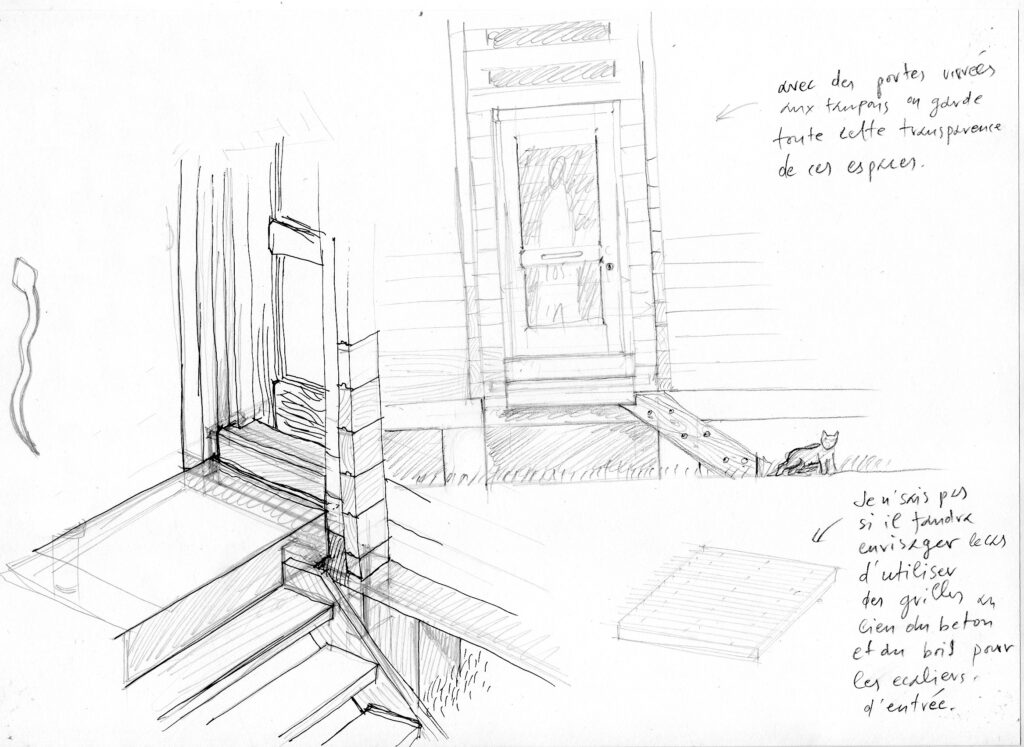 avec des portes vitrées
aux tampons on garde
toute cette transparence
de ces espaces.
Je n'sais pas
si il faudra
envisager le cas
d'utiliser
des grilles au
lieu du beton
et du bois pour
les escaliers.
d'entrée.